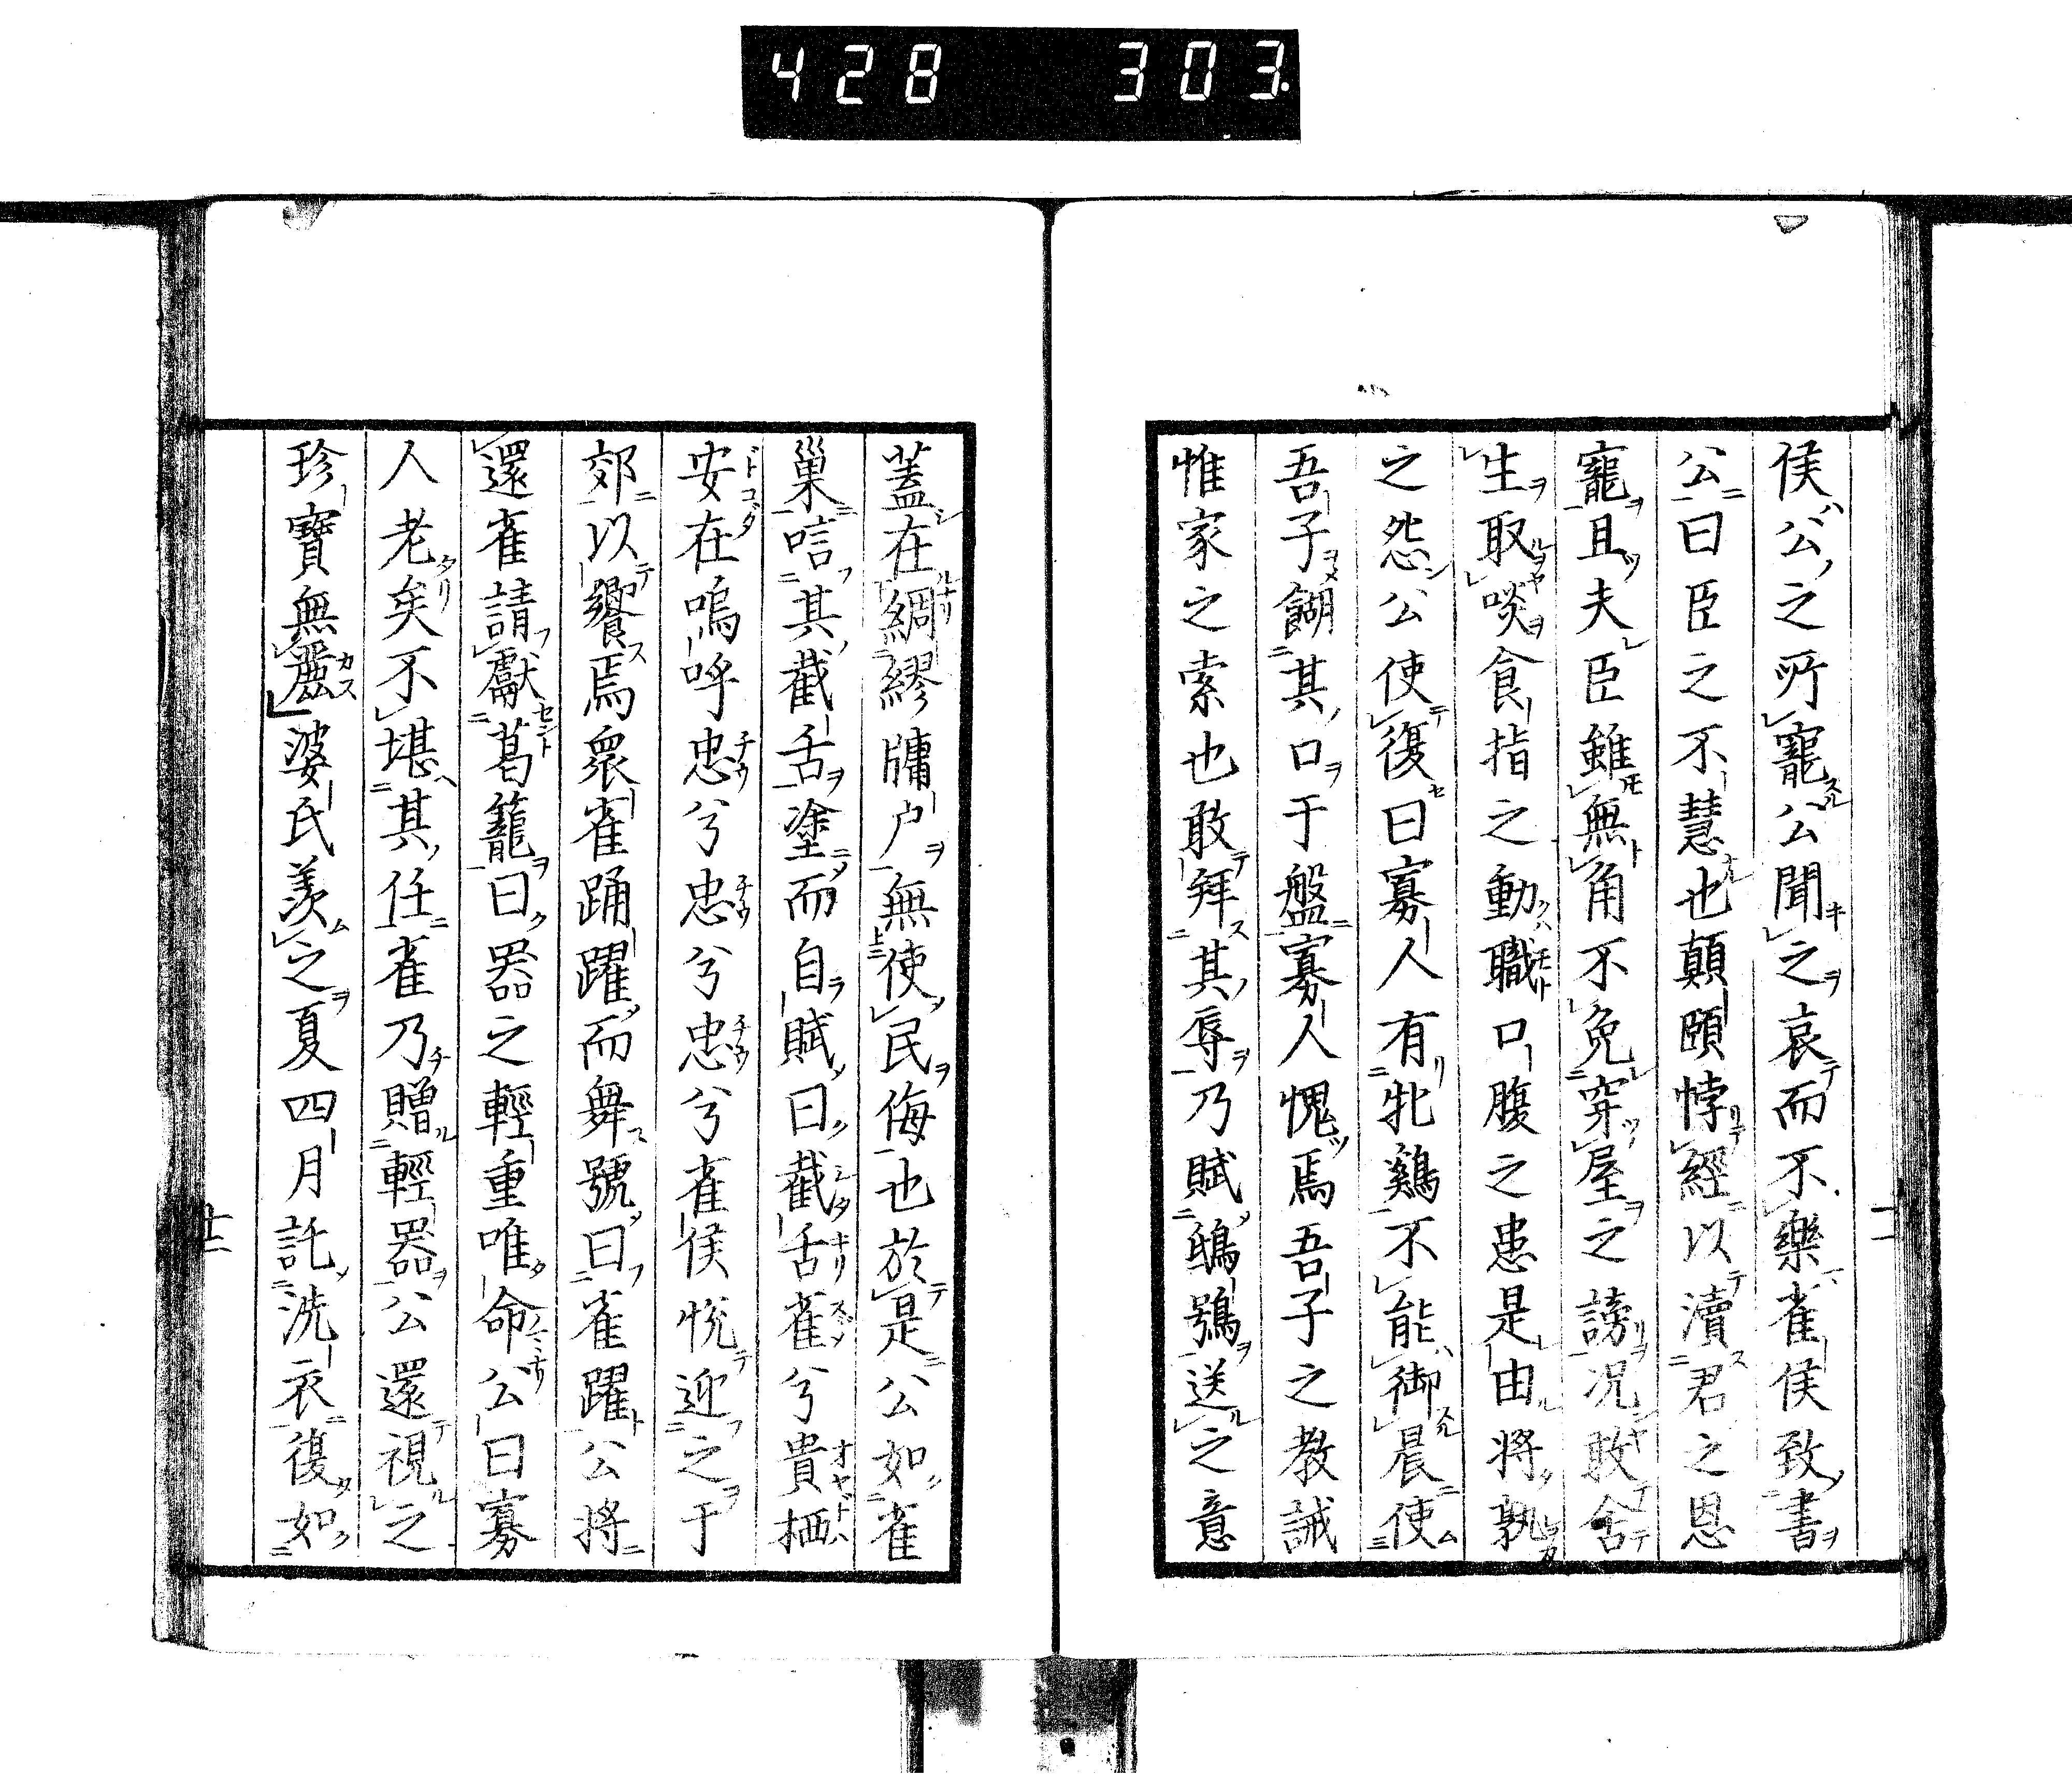 428 303.
侯公之所寵公聞之哀而不樂雀侯致書
公曰臣之不慧也顛頤悖經以瀆君之恩
寵且夫臣雖無角不免穿屋之謗況敢舍
生取啖食指之動職口腹之患是由將孰
之怨公使復曰寡人有牝鷄不能御晨使
吾子餬其口于盤寡人愧焉吾子之教誡
惟家之索也敢拜其辱乃賦鴟鴞送之意
蓋在綢繆牖戶無使民侮也於是公如雀
巢唁其截舌塗而自賦曰截舌雀兮貴栖
安在嗚呼忠兮忠兮忠兮雀侯悅迎之于
郊以饗焉眾雀踊躍而舞號曰雀躍公將
還雀請獻葛籠曰器之輕重唯命公曰寡
人老矣不堪其任雀乃贈輕器公還視之
珍寶無麗婆氏羨之夏四月託洗衣復如
十二